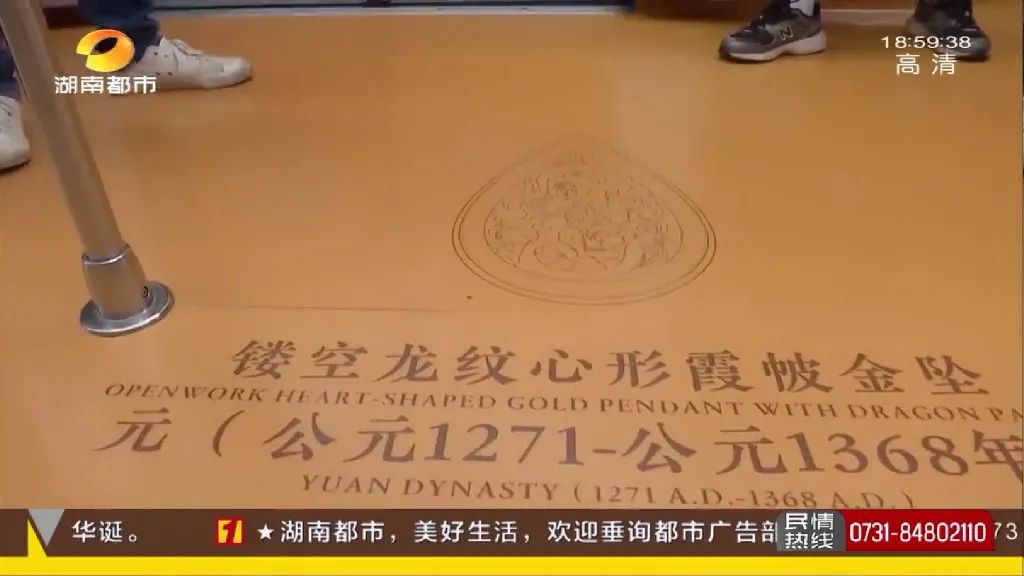 湖南都市
18:59:38
高清
N
镂空龙纹心形霞帔金坠
OPENWORK HEART-SHAPED GOLD PENDANT WITH DRAGON PA
元（公元1271-公元1368年
YUAN DYNASTY (1271 A.D.-1368 A.D.)
华诞。 ★湖南都市，美好生活，欢迎垂询都市广告部
民情热线
0731-84802110
73